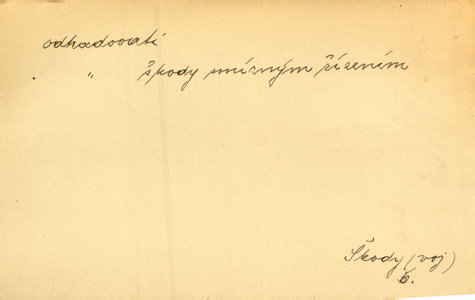 odhadovati
" škody smírným řízením
Škody (voj)
6.